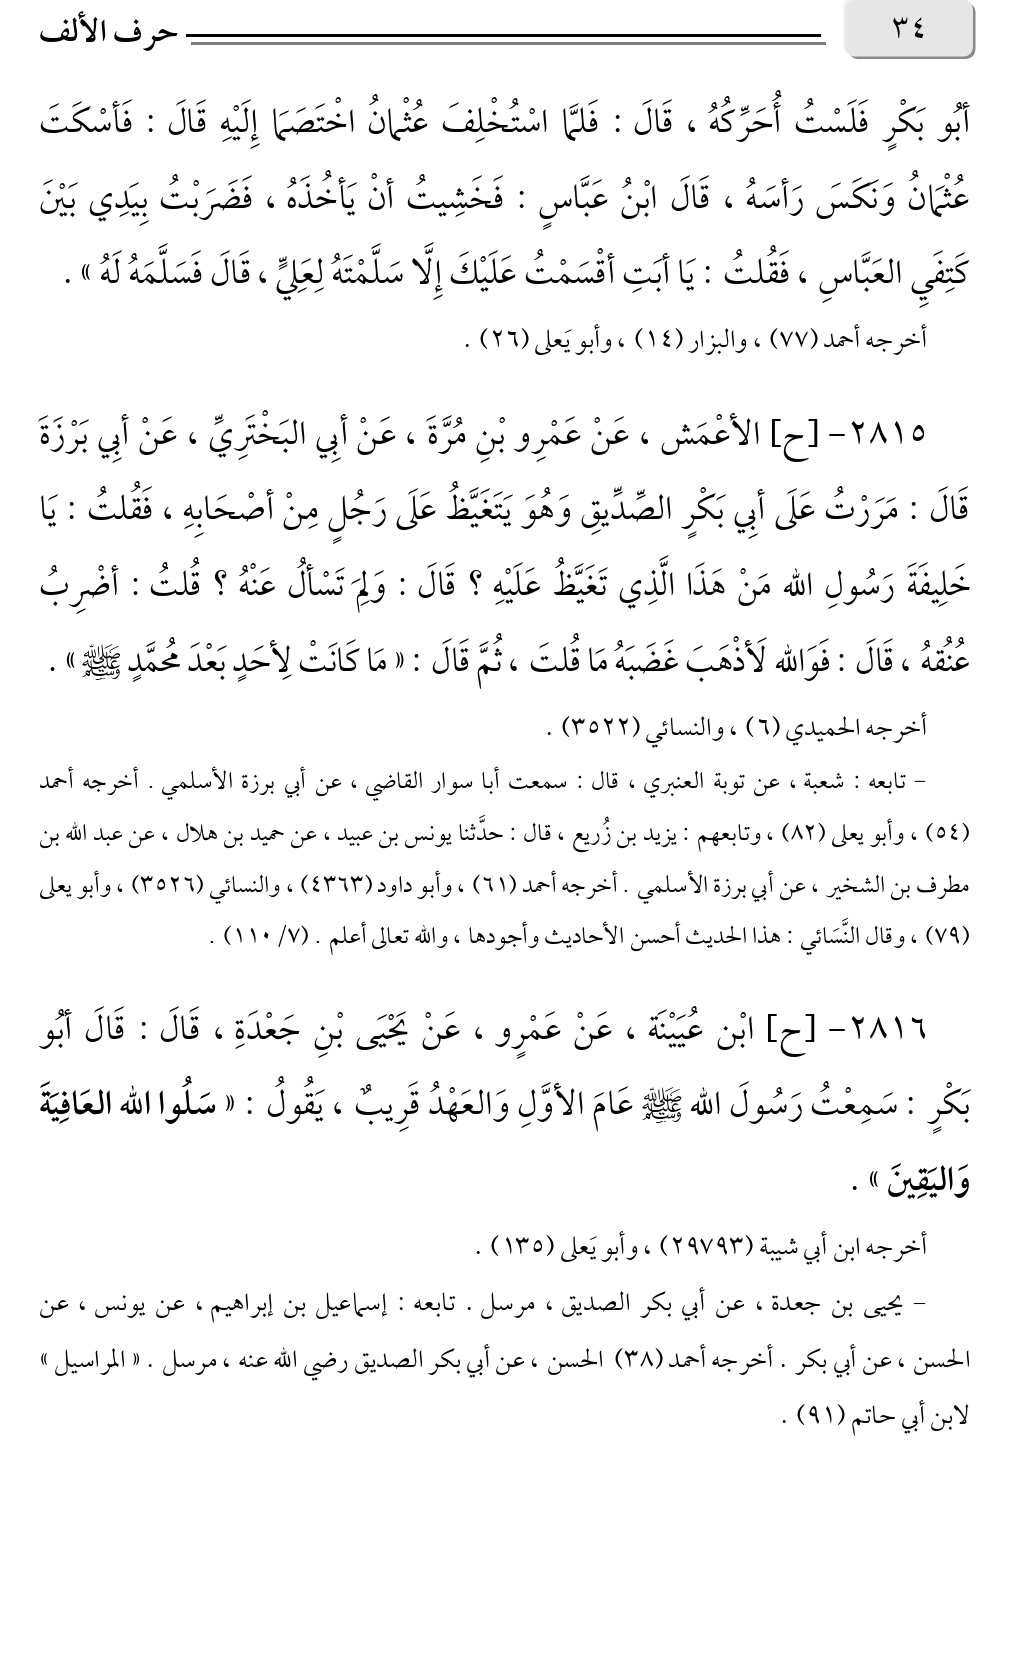 ٣٤ حرف الألف
أبُو بَكْرٍ فَلَسْتُ أُحَرِّكُهُ ، قَالَ : فَلمَّا اسْتُخْلِفَ عُثْمانُ اخْتَصَمَا إِلَيْهِ قَالَ : فَأسْكَتَ
عُثْمَانُ وَنَكَسَ رَأسَهُ ، قَالَ ابْنُ عَبَّاسٍ : فَخَشِيتُ أنْ يَأخُذَهُ ، فَضَرَبْتُ بِيَدِي بَيْنَ
كَتِفَيِ العَبَّاسِ ، فَقُلتُ : يَا أبَتِ أقْسَمْتُ عَلَيْكَ إِلَّا سَلَّمْتَهُ لِعَلِيٍّ ، قَالَ فَسَلَّمَهُ لَهُ » .
أخرجه أحمد (٧٧) ، والبزار (١٤) ، وأبو يَعلى (٢٦) .
٢٨١٥- [ح] الأعْمَش ، عَنْ عَمْرِو بْنِ مُرَّةَ ، عَنْ أبِي البَخْتَرِيِّ ، عَنْ أبِي بَرْزَةَ
قَالَ : مَرَرْتُ عَلَى أبِي بَكْرٍ الصِّدِّيقِ وَهُوَ يَتَغَيَّظُ عَلَى رَجُلٍ مِنْ أصْحَابِهِ ، فَقُلتُ : يَا
خَلِيفَةَ رَسُولِ الله مَنْ هَذَا الَّذِي تَغَيَّظُ عَلَيْهِ ؟ قَالَ : وَلِمَ تَسْألُ عَنْهُ ؟ قُلتُ : أضْرِبُ
عُنُقهُ ، قَالَ : فَوَالله لَأذْهَبَ غَضَبَهُ مَا قُلتَ ، ثُمَّ قَالَ : « مَا كَانَتْ لِأحَدٍ بَعْدَ مُحمَّدٍ ﷺ » .
أخرجه الحميدي (٦) ، والنسائي (٣٥٢٢) .
- تابعه : شعبة ، عن توبة العنبري ، قال : سمعت أبا سوار القاضي ، عن أبي برزة الأسلمي . أخرجه أحمد
(٥٤) ، وأبو يعلى (٨٢) ، وتابعهم : يزيد بن زُريع ، قال : حدَّثنا يونس بن عبيد ، عن حميد بن هلال ، عن عبد الله بن
مطرف بن الشخير ، عن أبي برزة الأسلمي . أخرجه أحمد (٦١) ، وأبو داود (٤٣٦٣) ، والنسائي (٣٥٢٦) ، وأبو يعلى
(٧٩) ، وقال النَّسَائي : هذا الحديث أحسن الأحاديث وأجودها ، والله تعالى أعلم . (٧/ ١١٠) .
٢٨١٦- [ح] ابْن عُيَيْنَة ، عَنْ عَمْرٍو ، عَنْ يَحْيَى بْنِ جَعْدَةِ ، قَالَ : قَالَ أبُو
بَكْرٍ : سَمِعْتُ رَسُولَ الله ﷺ عَامَ الأوَّلِ وَالعَهْدُ قَرِيبٌ ، يَقُولُ : « سَلُوا الله العَافِيَةَ
وَاليَقِينَ » .
أخرجه ابن أبي شيبة (٢٩٧٩٣) ، وأبو يَعلى (١٣٥) .
- يحيى بن جعدة ، عن أبي بكر الصديق ، مرسل . تابعه : إسماعيل بن إبراهيم ، عن يونس ، عن
الحسن ، عن أبي بكر . أخرجه أحمد (٣٨) الحسن ، عن أبي بكر الصديق رضي الله عنه ، مرسل . « المراسيل »
لابن أبي حاتم (٩١) .